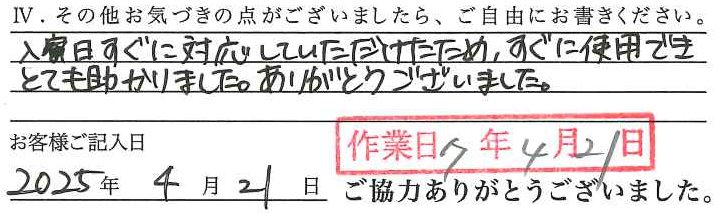 Ⅳ．その他お気づきの点がございましたら、ご自由にお書きください。
入寮日すぐに対応していただけたため、すぐに使用でき
とても助かりました。ありがとうございました。
お客様ご記入日
作業日 7年4月21日
2025年 4月21日
ご協力ありがとうございました。